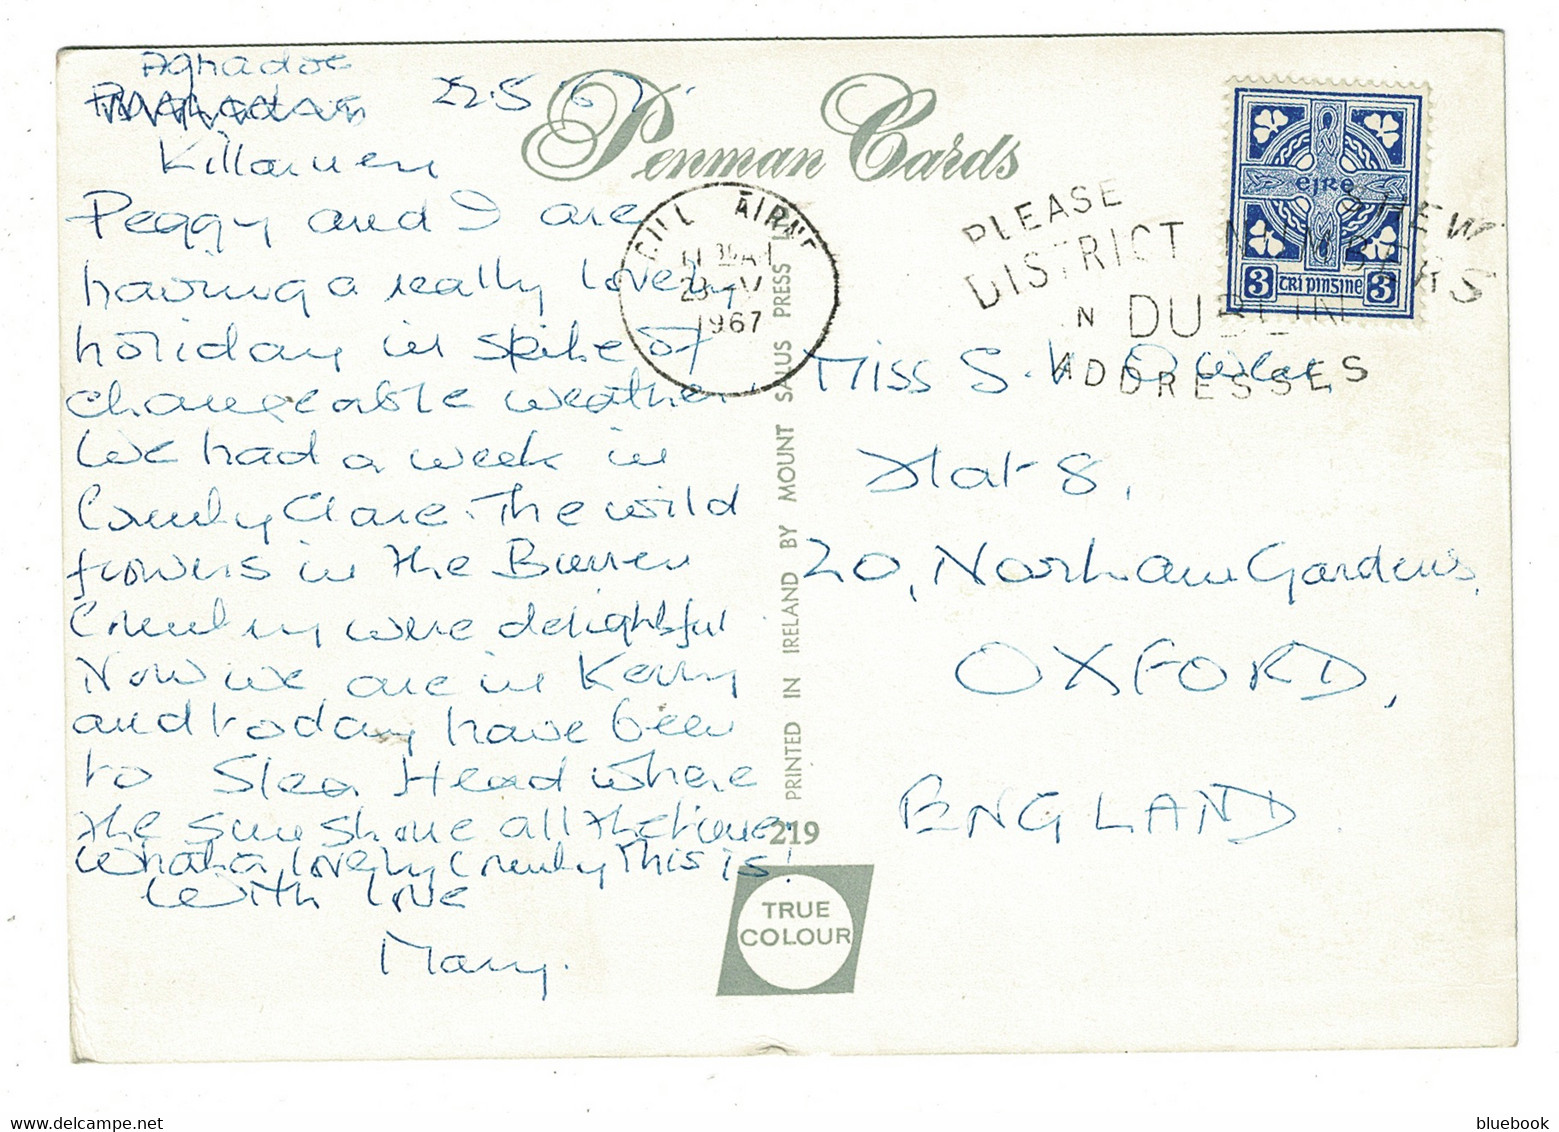 Aghadoe
Killarney
22.5.67.
Peggy and I are
having a really lovely
holiday in spite of
changeable weather.
We had a week in
County Clare. The wild
flowers in the Burren
Country were delightful
Now we are in Kerry
and today have been
to Slea Head where
the sun shone all the time.
What a lovely County this is!
With love
Mary.
Penman Cards
CILL AIRNE
1967
PLEASE SHEW
DISTRICT NUMBERS
IN DUBLIN
ADDRESSES
éire
3 trí pinsine 3
Miss S. V.
Flat 8,
20, Norham Gardens,
OXFORD,
ENGLAND.
PRINTED IN IRELAND BY MOUNT SALUS PRESS
219
TRUE
COLOUR
bluebook